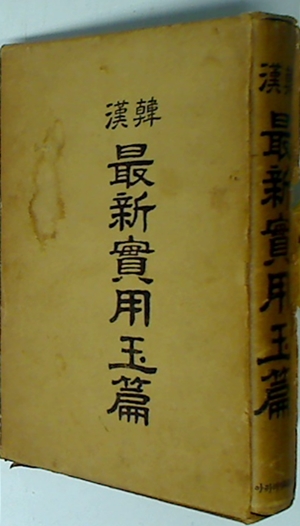 韓漢
最新實用玉篇
韓漢
最新實用玉篇